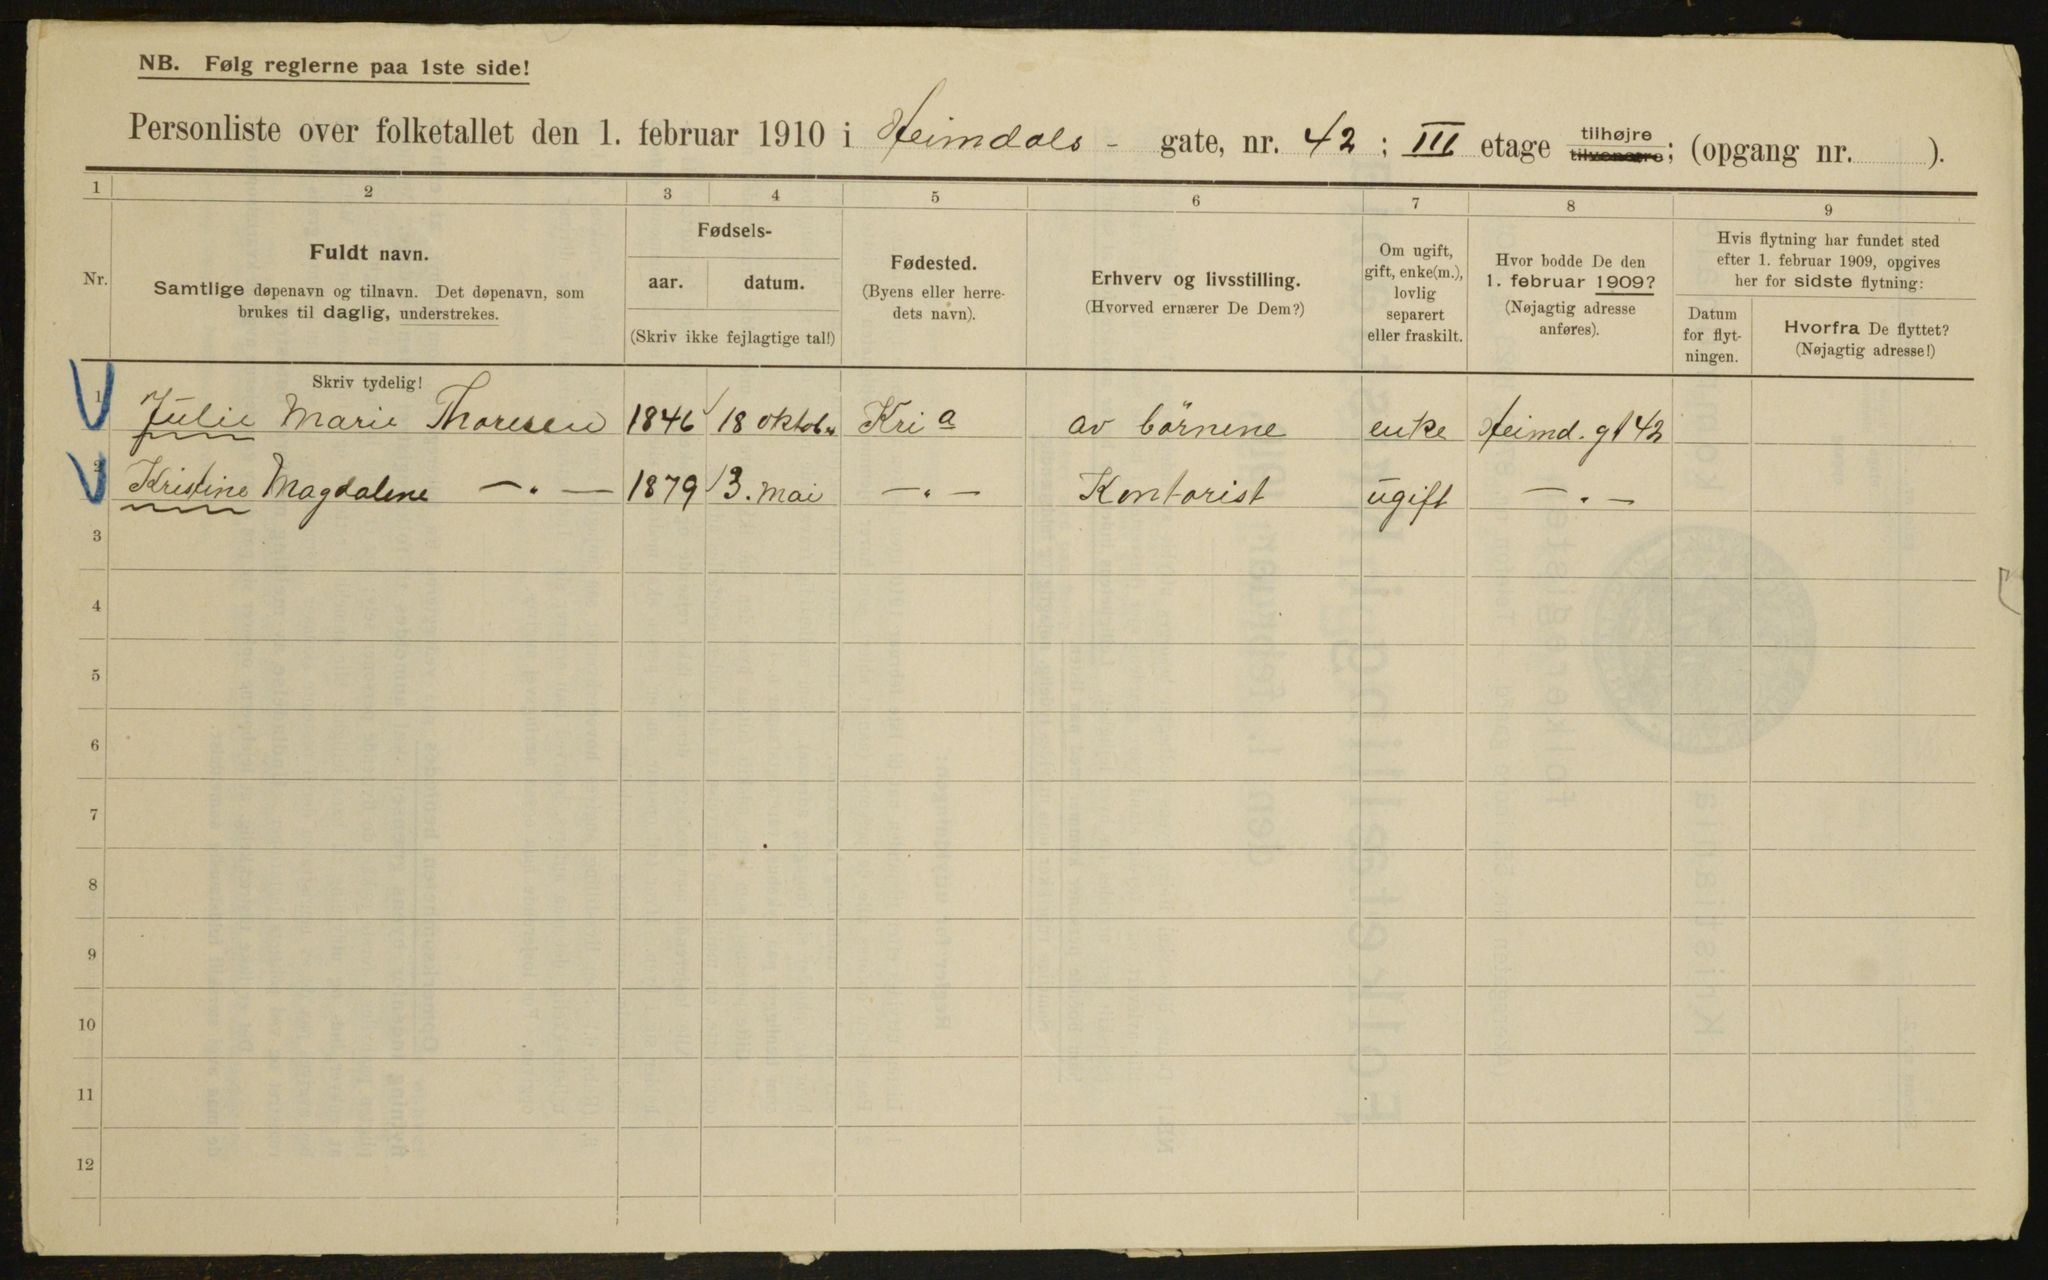 NB. Følg reglerne paa 1ste side!
Personliste over folketallet den 1. februar 1910 i Heimdals - gate, nr. 42 ; III etage tilhøjre tilvenstre; (opgang nr. ).
1 2 3 4 5 6 7 8 9
Nr.
Fuldt navn.
Samtlige døpenavn og tilnavn. Det døpenavn, som
brukes til daglig, understrekes.
Fødsels-
aar. datum.
(Skriv ikke fejlagtige tal!)
Fødested.
(Byens eller herre-
dets navn).
Erhverv og livsstilling.
(Hvorved ernærer De Dem?)
Om ugift,
gift, enke(m.),
lovlig
separert
eller fraskilt.
Hvor bodde De den
1. februar 1909?
(Nøjagtig adresse
anføres).
Hvis flytning har fundet sted
efter 1. februar 1909, opgives
her for sidste flytning:
Datum
for flyt-
ningen.
Hvorfra De flyttet?
(Nøjagtig adresse!)
Skriv tydelig!
1 Julie Marie Thoresen 1846 18 oktob. Kria av börnene enke Heimd. gt 42
2 Kristine Magdalene —"— 1879 3. mai —"— Kontorist ugift —"—
3
4
5
6
7
8
9
10
11
12